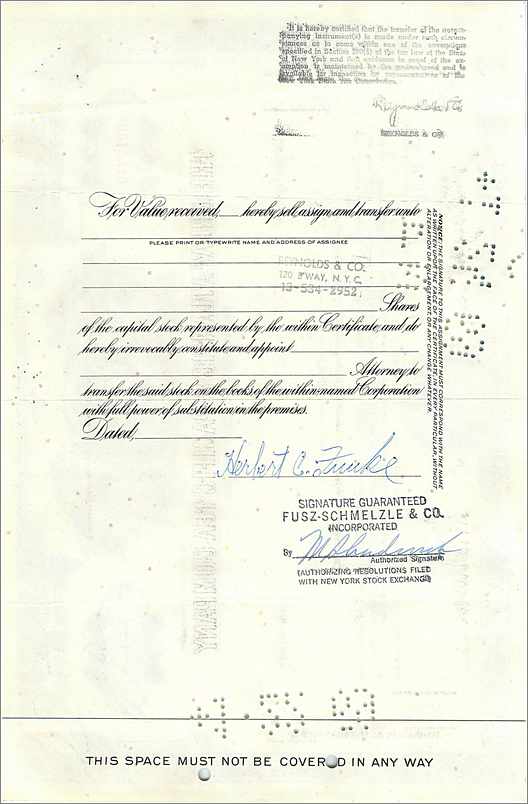 It is hereby certified that the transfer of the accom-
panying instrument(s) is made under such circum-
stances as to come within one of the exemptions
specified in Section 270(5) of the tax law of the State
of New York and that evidence in proof of the ex-
emption is maintained by the undersigned and is
available for inspection by representatives of the
New York State Tax Commission.
Reynolds & Co
REYNOLDS & CO.
For Value received, hereby sell, assign and transfer unto
PLEASE PRINT OR TYPEWRITE NAME AND ADDRESS OF ASSIGNEE
REYNOLDS & CO.
120 B'WAY, N.Y.C.
13-534-2952
Shares
of the capital stock represented by the within Certificate, and do
hereby irrevocably constitute and appoint
Attorney to
transfer the said stock on the books of the within-named Corporation
with full power of substitution in the premises.
Dated,
NOTICE: THE SIGNATURE TO THIS ASSIGNMENT MUST CORRESPOND WITH THE NAME
AS WRITTEN UPON THE FACE OF THE CERTIFICATE IN EVERY PARTICULAR, WITHOUT
ALTERATION OR ENLARGEMENT OR ANY CHANGE WHATEVER.
Herbert C. Funke
SIGNATURE GUARANTEED
FUSZ-SCHMELZLE & CO.
INCORPORATED
By
Authorized Signature
(AUTHORIZING RESOLUTIONS FILED
WITH NEW YORK STOCK EXCHANGE)
THIS SPACE MUST NOT BE COVERED IN ANY WAY